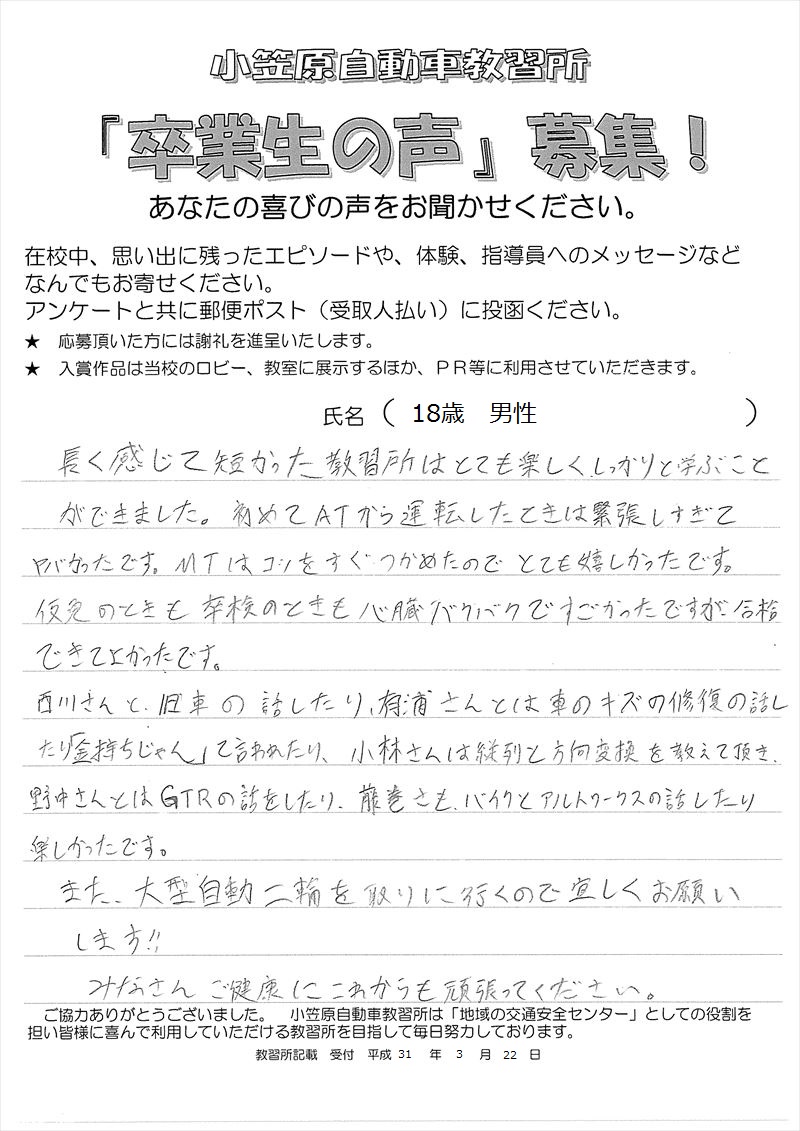 小笠原自動車教習所
『卒業生の声』募集！
あなたの喜びの声をお聞かせください。
在校中、思い出に残ったエピソードや、体験、指導員へのメッセージなど
なんでもお寄せください。
アンケートと共に郵便ポスト（受取人払い）に投函ください。
★ 応募頂いた方には謝礼を進呈いたします。
★ 入賞作品は当校のロビー、教室に展示するほか、ＰＲ等に利用させていただきます。
氏名（ 18歳 男性 ）
長く感じて短かった教習所はとても楽しくしっかりと学ぶこと
ができました。初めてATから運転したときは緊張しすぎて
ヤバかったです。MTはコツをすぐつかめたのでとても嬉しかったです。
仮免のときも卒検のときも心臓バクバクですごかったですが、合格
できてよかったです。
西川さんと、旧車の話したり、有浦さんとは車のキズの修復の話し
たり「金持ちじゃん」て言われたり、小林さんは縦列と方向変換を教えて頂き、
野中さんとはGTRの話をしたり、藤巻さも、バイクとアルトワークスの話したり
楽しかったです。
また、大型自動二輪を取りに行くので宜しくお願い
します!!
みなさんご健康にこれからも頑張ってください。
ご協力ありがとうございました。 小笠原自動車教習所は「地域の交通安全センター」としての役割を
担い皆様に喜んで利用していただける教習所を目指して毎日努力しております。
教習所記載 受付 平成 31 年 3 月 22 日